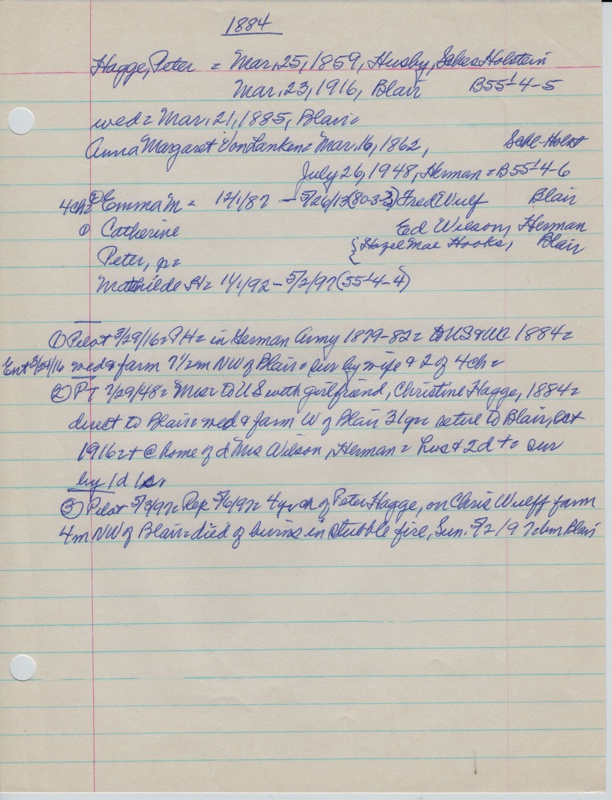 1884
Hagge, Peter = Mar. 25, 1859, Husby, Holstein
Mar. 23, 1916, Blair B55-4-5
wed = Mar. 21, 1885, Blair =
Anna Margaret VonLanken = Mar. 16, 1862,
July 26, 1948, Herman = B55-4-6
4ch = ② Emma M = - 5/26/13 (80-3-3) Fred Wulf Blair
① Catherine Ed Wilson, Herman
Peter, jr = { Hazel Mae Hooks, Blair
= 11/1/92 - 5/2/97 (55-4-4)
① Pilot 3/29/16 = PH = in German Army 1879-82 = to US & WC 1884 =
Ent 3/24/16 wed & farm 7 1/2 m NW of Blair = sur by wife & 2 of 4 ch =
② PT 7/29/48 = to US with girl friend, Christine Hagge, 1884 =
direct to Blair = wed & farm W of Blair 31 yr = retire to Blair, Oct
1916 = + @ home of d Mrs Wilson, Herman = hus & 2d + = sur
by 1d 1s.
③ Pilot 5/3/97 = Rep 5/6/97 = 4 yr ch of Peter Hagge, on Chris Wulff farm
4m NW of Blair = died of burns in stubble fire, Sun. 5/2/97 = bm Blair